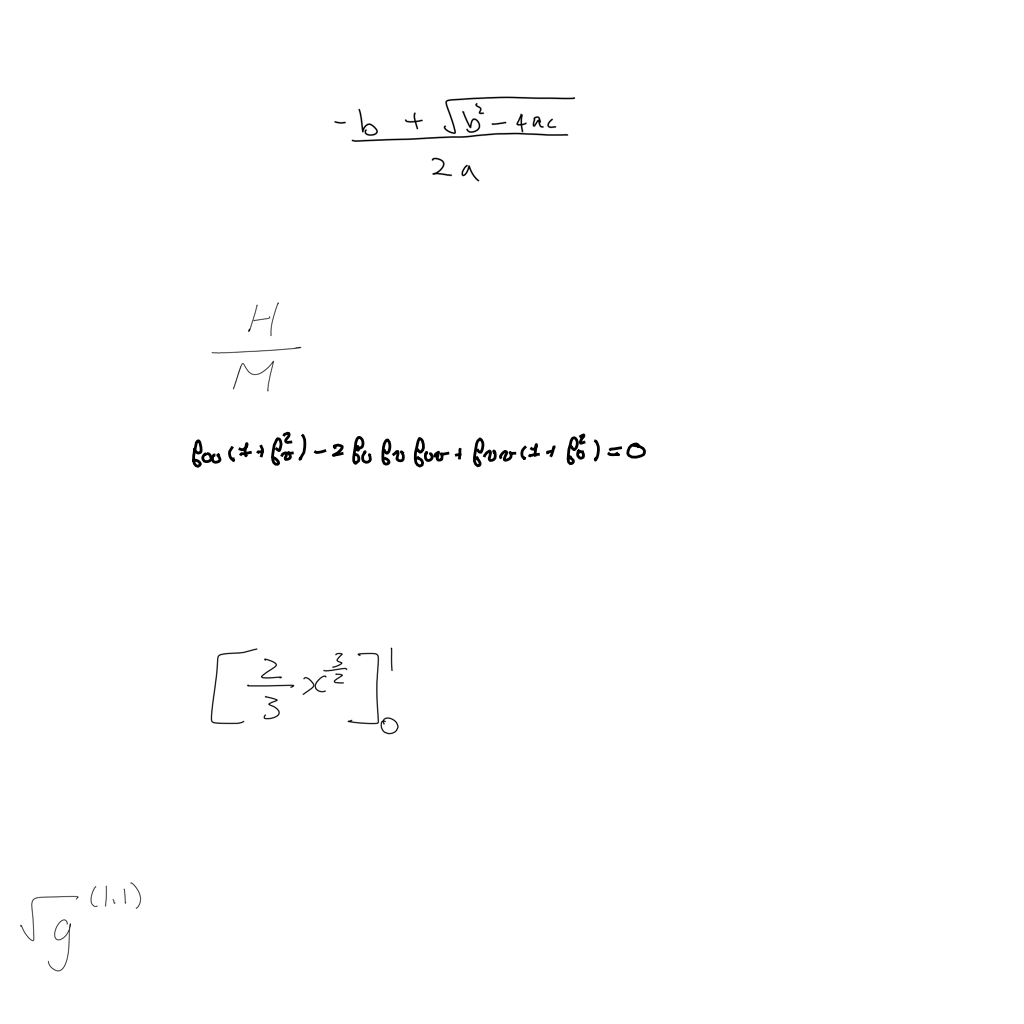 \frac{-b + \sqrt{b^2 - 4ac}}{2a}
\frac{H}{M}
f_{uu}(1 + f_v^2) - 2 f_u f_v f_{uv} + f_{vv}(1 + f_u^2) = 0
\left[\frac{2}{3} x^{\frac{3}{2}}\right]_0^1
\sqrt{g}^{(1,1)}